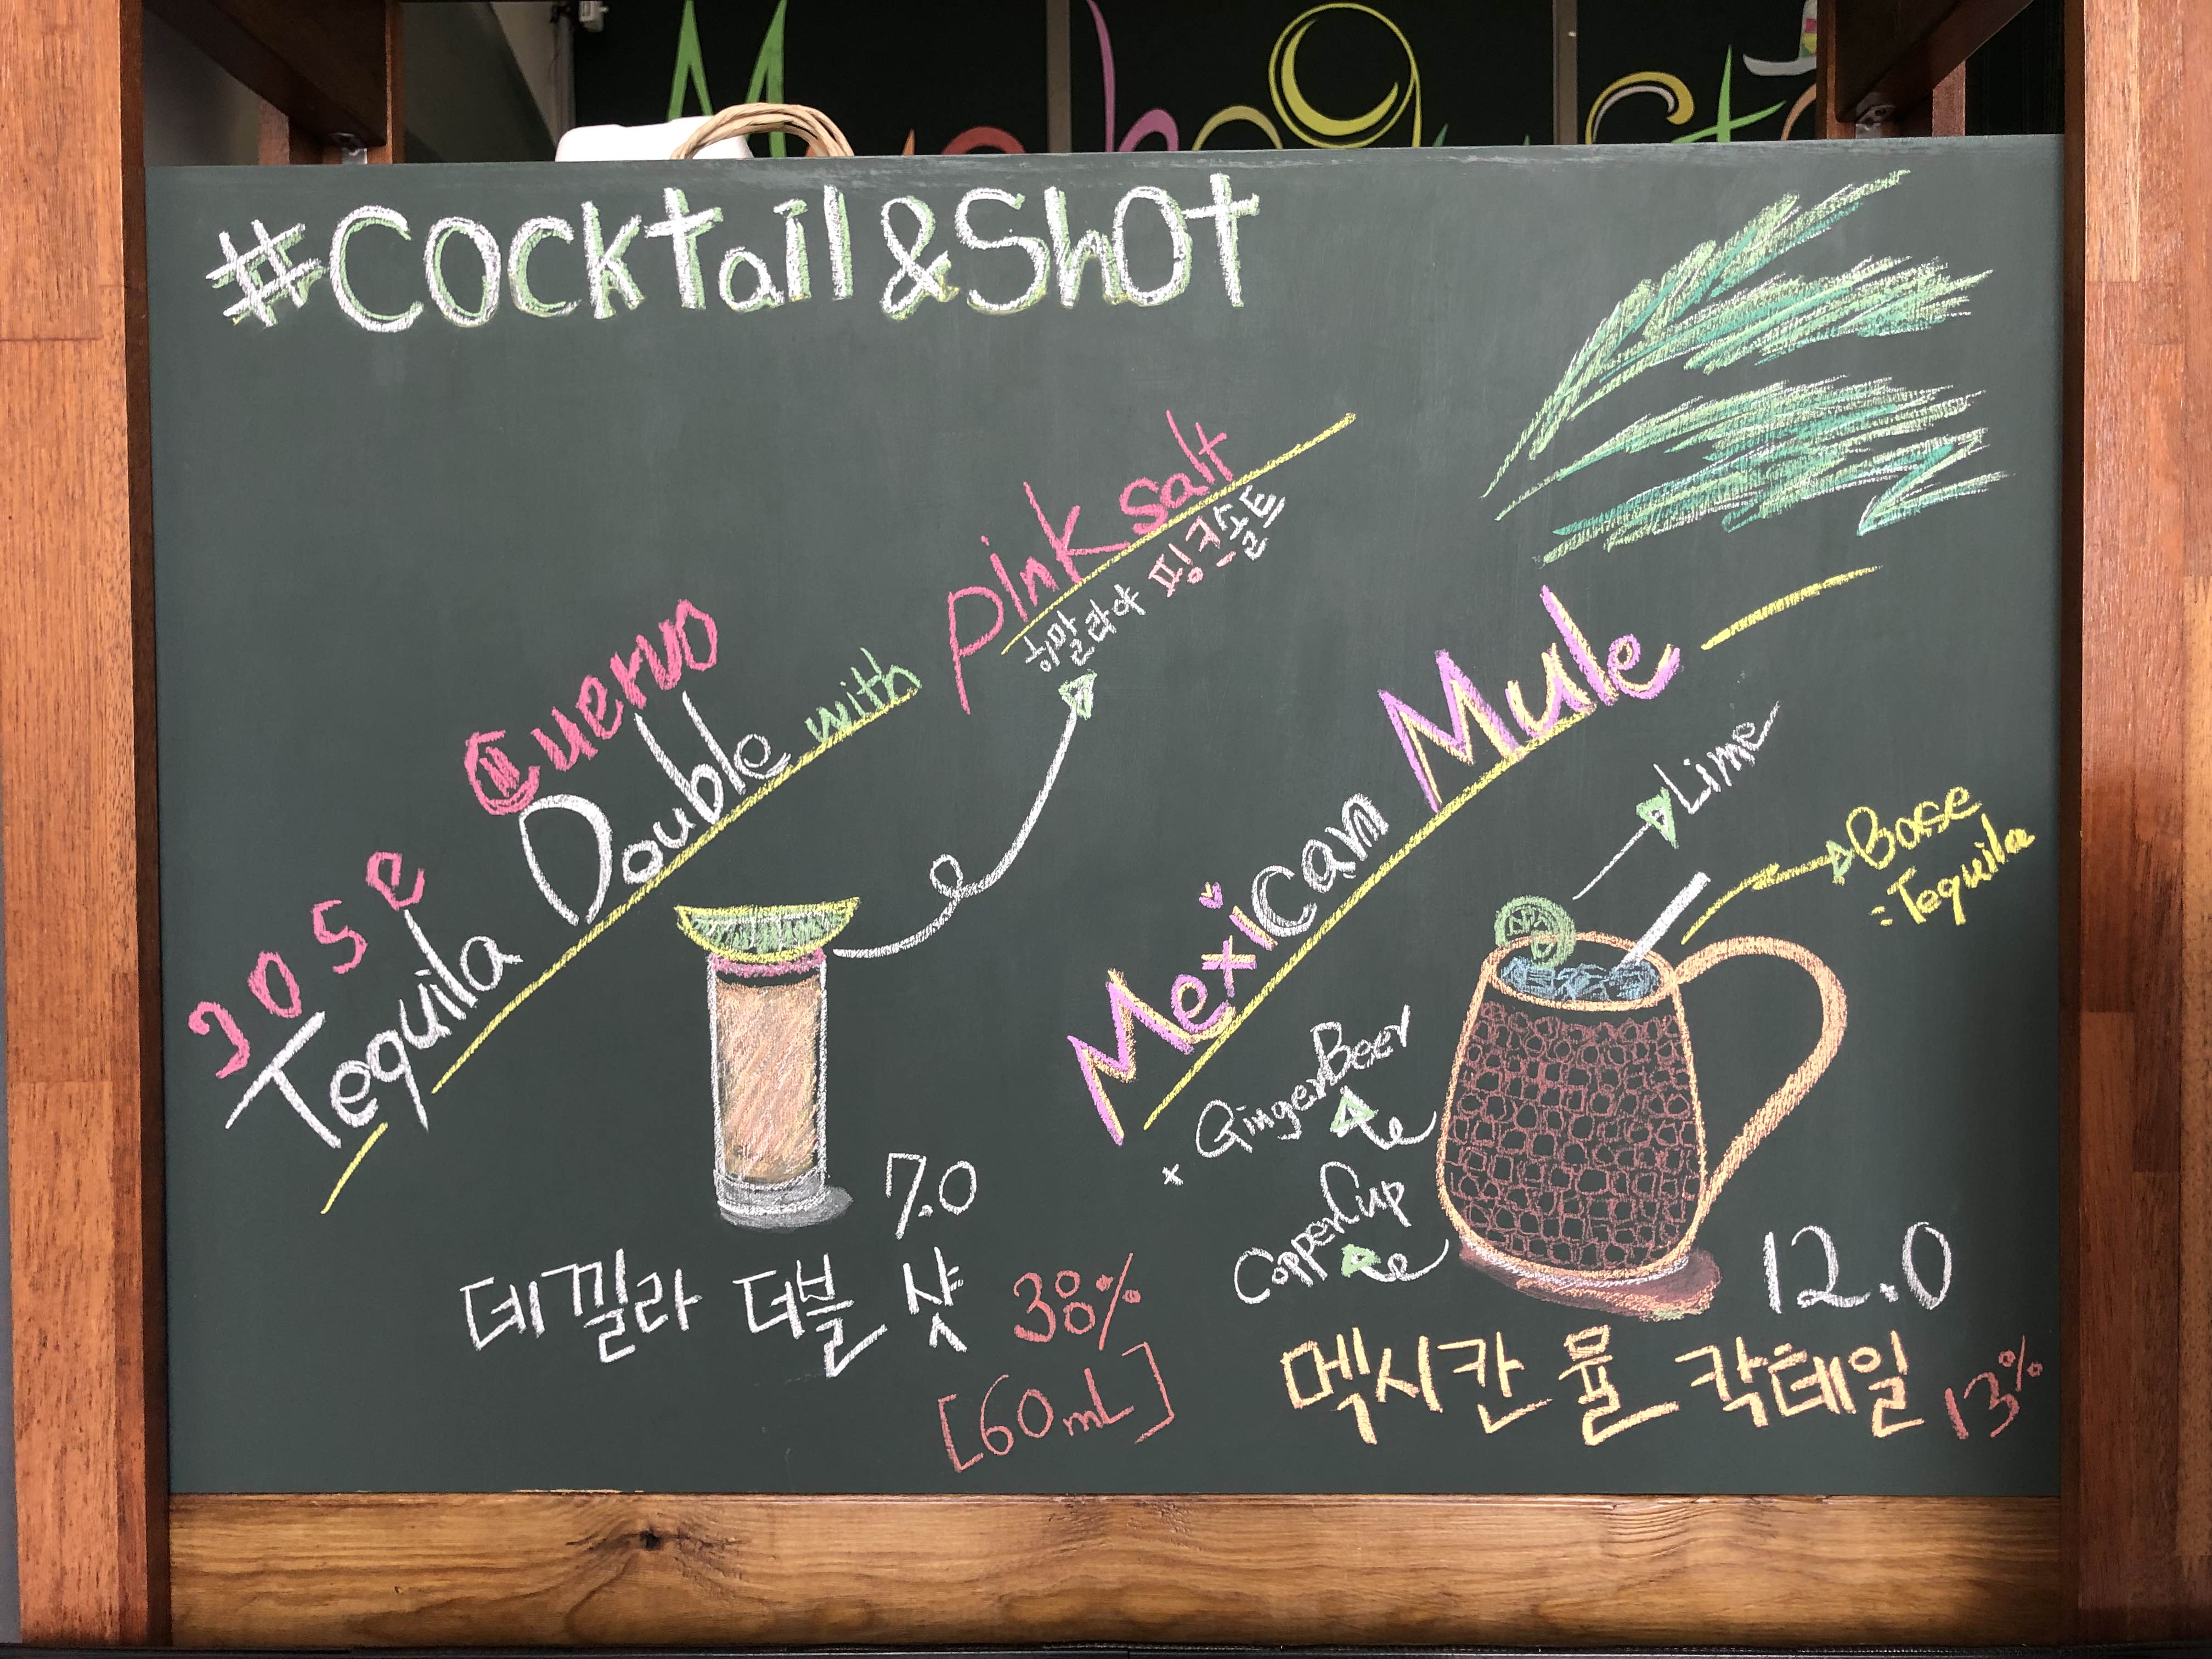 #Cocktail&Shot
Jose Cuervo
Tequila Double with pInk salt
히말라야 핑크솔트
7.0
데낄라 더블 샷 38%
[60mL]
Mexican Mule
Lime
Base
=Tequila
+ GingerBeer
CopperCup
12.0
멕시칸 뮬 칵테일 13%